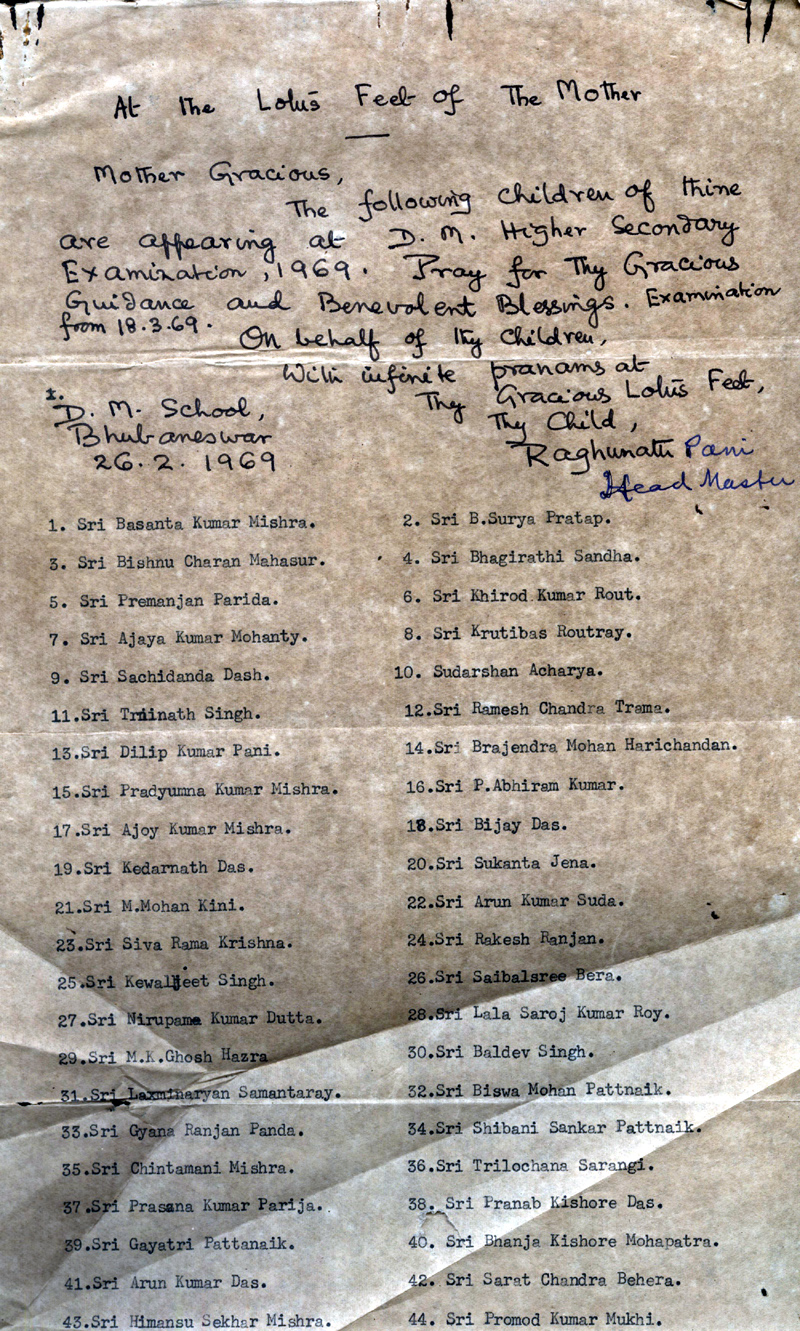 At the Lotus Feet of The Mother
Mother Gracious,
The following children of thine
are appearing at D. M. Higher Secondary
Examination, 1969. Pray for Thy Gracious
Guidance and Benevolent Blessings. Examination
from 18.3.69.
On behalf of thy children,
With infinite pranams at
Thy Gracious Lotus Feet,
Thy Child,
Raghunath Pani
Head Master
D. M. School,
Bhubaneswar
26.2.1969
1. Sri Basanta Kumar Mishra. 2. Sri B.Surya Pratap.
3. Sri Bishnu Charan Mahasur. 4. Sri Bhagirathi Sandha.
5. Sri Premanjan Parida. 6. Sri Khirod Kumar Rout.
7. Sri Ajaya Kumar Mohanty. 8. Sri Krutibas Routray.
9. Sri Sachidanda Dash. 10. Sudarshan Acharya.
11.Sri Trinath Singh. 12.Sri Ramesh Chandra Trama.
13.Sri Dilip Kumar Pani. 14.Sri Brajendra Mohan Harichandan.
15.Sri Pradyumna Kumar Mishra. 16.Sri P.Abhiram Kumar.
17.Sri Ajoy Kumar Mishra. 18.Sri Bijay Das.
19.Sri Kedarnath Das. 20.Sri Sukanta Jena.
21.Sri M.Mohan Kini. 22.Sri Arun Kumar Suda.
23.Sri Siva Rama Krishna. 24.Sri Rakesh Ranjan.
25.Sri Kewaljeet Singh. 26.Sri Saibalsree Bera.
27.Sri Nirupama Kumar Dutta. 28.Sri Lala Saroj Kumar Roy.
29.Sri M.K.Ghosh Hazra 30.Sri Baldev Singh.
31.Sri Laxminaryan Samantaray. 32.Sri Biswa Mohan Pattnaik.
33.Sri Gyana Ranjan Panda. 34.Sri Shibani Sankar Pattnaik.
35.Sri Chintamani Mishra. 36.Sri Trilochana Sarangi.
37.Sri Prasana Kumar Parija. 38. Sri Pranab Kishore Das.
39.Sri Gayatri Pattanaik. 40. Sri Bhanja Kishore Mohapatra.
41.Sri Arun Kumar Das. 42. Sri Sarat Chandra Behera.
43.Sri Himansu Sekhar Mishra. 44. Sri Promod Kumar Mukhi.